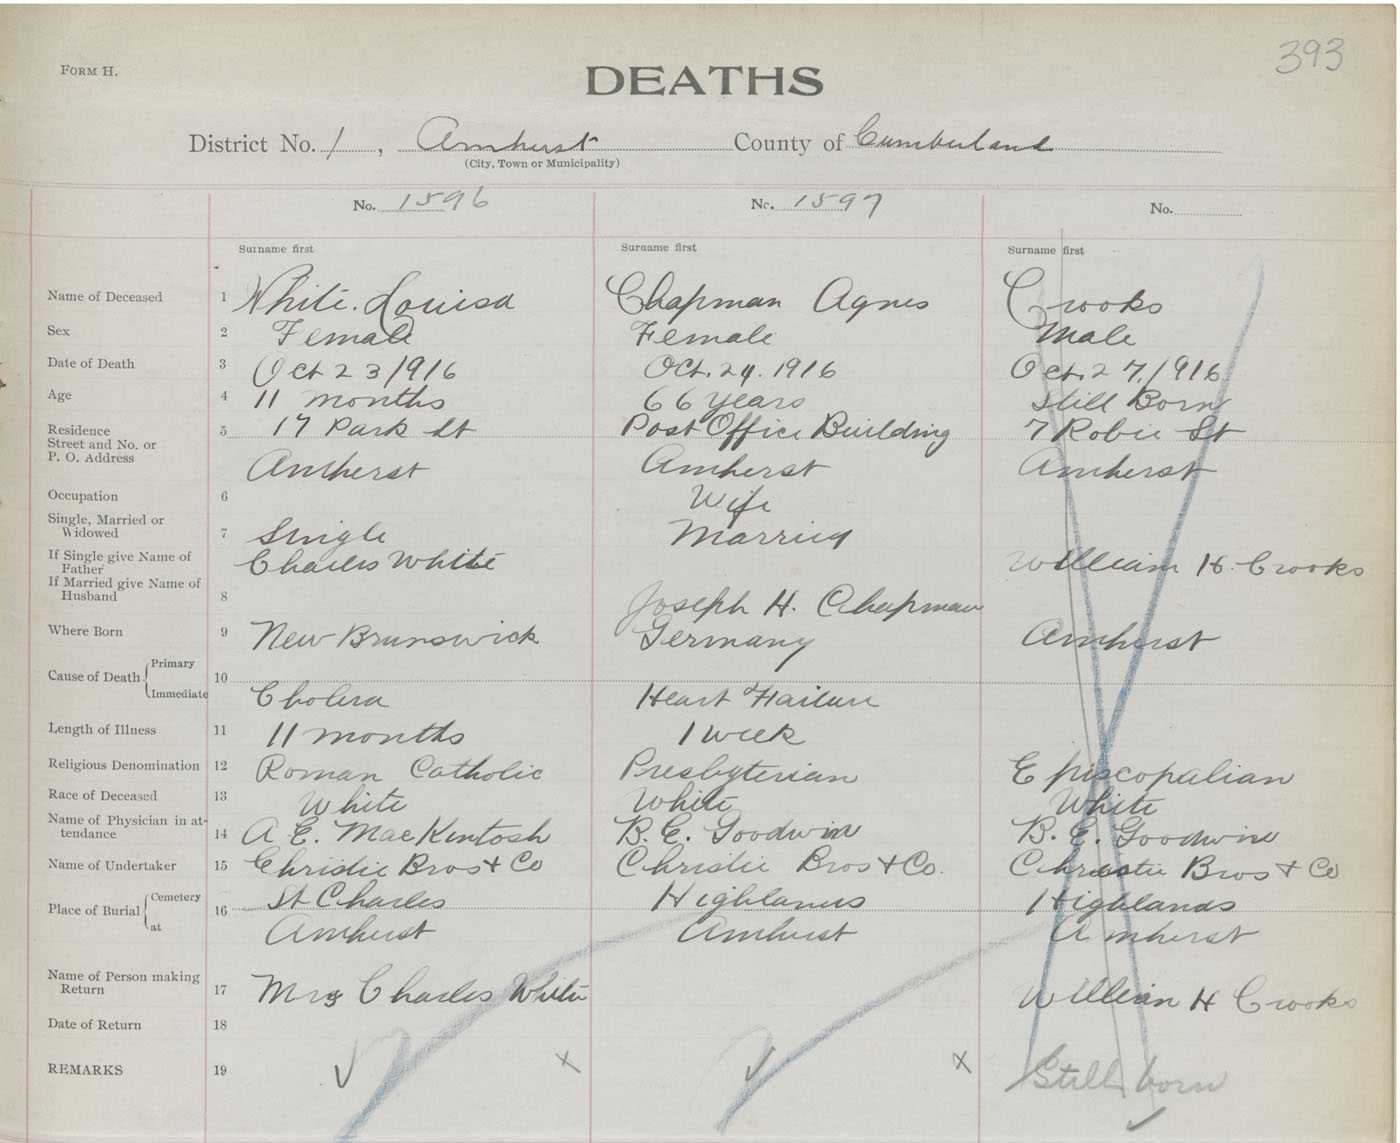 393
FORM H.
DEATHS
District No. 1, Amherst County of Cumberland
(City, Town or Municipality)
No. 1596 No. 1597 No.
Surname first Surname first Surname first
Name of Deceased 1 White. Louisa Chapman Agnes Crooks
Sex 2 Female Female Male
Date of Death 3 Oct 23/1916 Oct. 24. 1916 Oct. 27./1916
Age 4 11 months 66 years Still Born
Residence Street and No. or P. O. Address 5 17 Park St Post Office Building 7 Robie St
Amherst Amherst Amherst
Occupation 6 Wife
Single, Married or Widowed 7 Single Married
If Single give Name of Father Charles White William H. Crooks
If Married give Name of Husband 8 Joseph H. Chapman
Where Born 9 New Brunswick Germany Amherst
Cause of Death Primary 10
Immediate Cholera Heart Failure
Length of Illness 11 11 months 1 week
Religious Denomination 12 Roman Catholic Presbyterian Episcopalian
Race of Deceased 13 White White White
Name of Physician in attendance 14 A. E. MacKintosh B. E. Goodwin B. E. Goodwin
Name of Undertaker 15 Christie Bros & Co Christie Bros & Co. Christie Bros & Co
Place of Burial Cemetery 16 St Charles Highlands Highlands
at Amherst Amherst Amherst
Name of Person making Return 17 Mrs Charles White William H Crooks
Date of Return 18
REMARKS 19 Still born